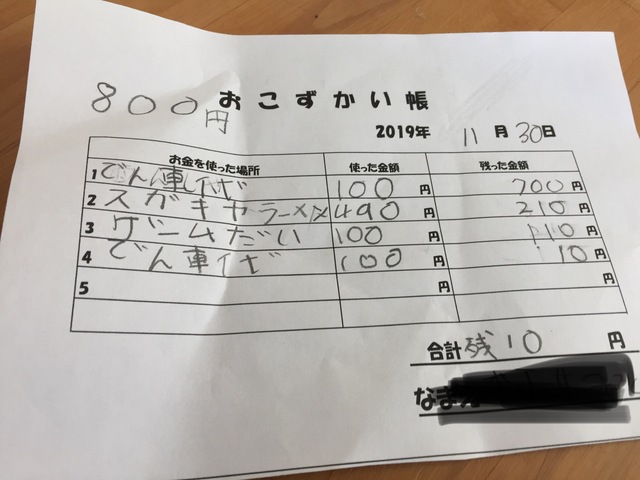 800円 おこずかい帳
2019年 11月30日
お金を使った場所 使った金額 残った金額
1 でん車代 100円 700円
2 スガキヤラーメン 490円 210円
3 ゲームだい 100円 110円
4 でん車代 100円 10円
5 円 円
合計 残10円
なま